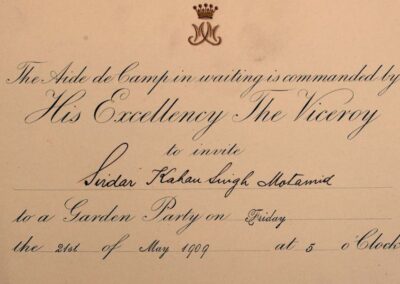 The Aide de Camp in waiting is commanded by
His Excellency The Viceroy
to invite
Sirdar Kahan Singh Motamid
to a Garden Party on Friday
the 21st of May 1909 at 5 o'Clock